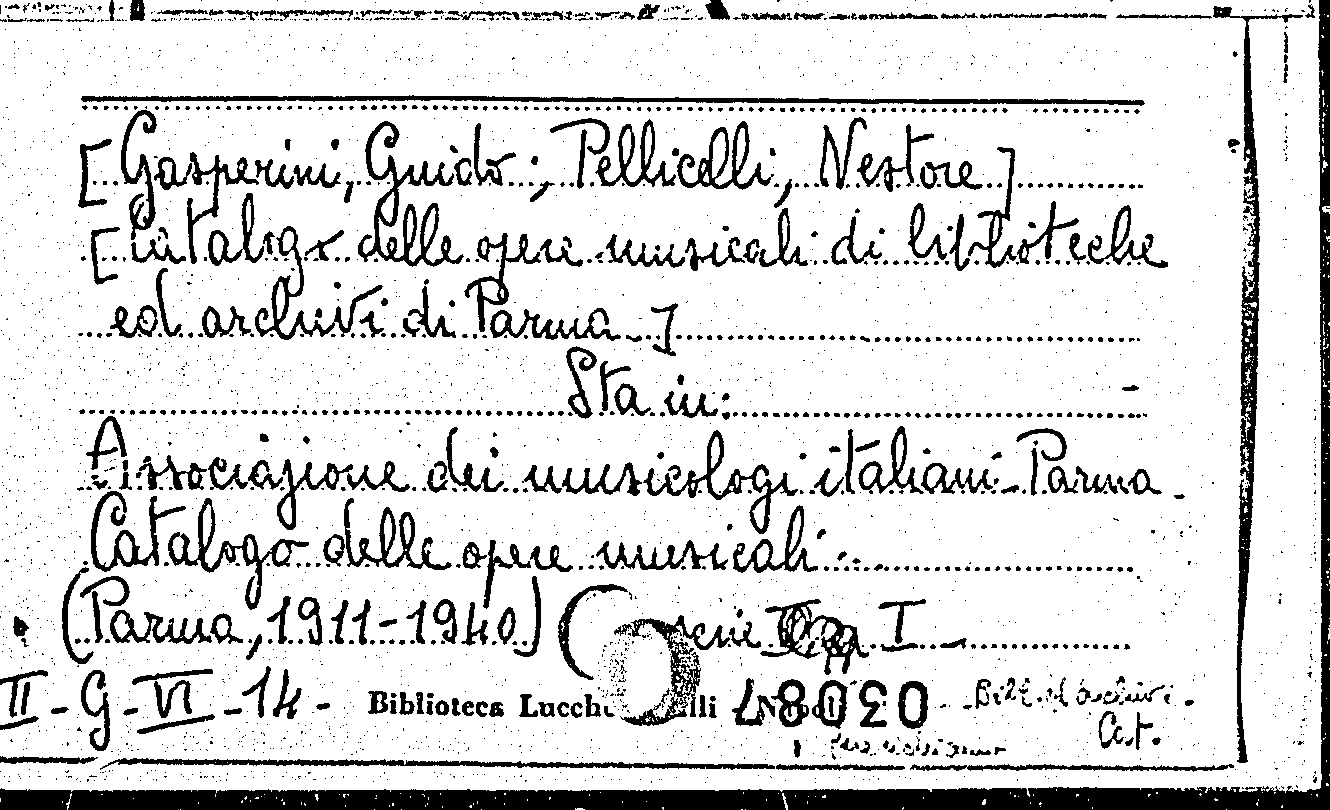 [Gasperini, Guido; Pellicelli, Nestore]
[Catalogo delle opere musicali di biblioteche
ed archivi di Parma]
Sta in:
Associazione dei musicologi italiani - Parma -
Catalogo delle opere musicali...
(Parma, 1911-1940) ( serie I -
II - G - VI - 14 - Biblioteca 03087
Cat.